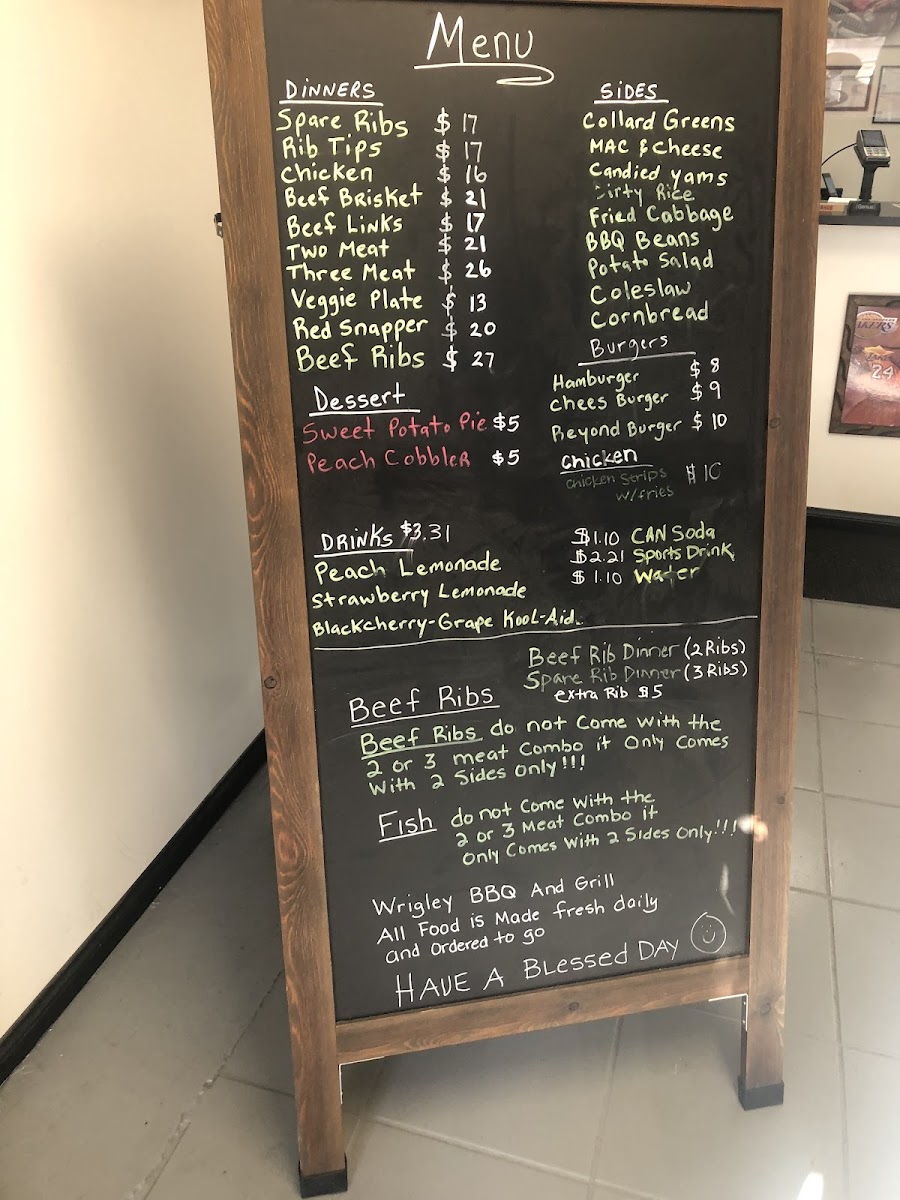 Menu
DINNERS
Spare Ribs $ 17
Rib Tips $ 17
Chicken $ 16
Beef Brisket $ 21
Beef Links $ 17
Two Meat $ 21
Three Meat $ 26
Veggie Plate $ 13
Red Snapper $ 20
Beef Ribs $ 27
Dessert
Sweet Potato Pie $5
Peach Cobbler $5
DRINKS $3.31
Peach Lemonade
Strawberry Lemonade
Blackcherry-Grape Kool-Aid.
SIDES
Collard Greens
MAC & Cheese
Candied Yams
Dirty Rice
Fried Cabbage
BBQ Beans
Potato Salad
Coleslaw
Cornbread
Burgers
Hamburger $ 8
Chees Burger $ 9
Beyond Burger $ 10
Chicken
Chicken Strips $ 10
w/fries
$1.10 CAN Soda
$2.21 Sports Drink
$1.10 Water
Beef Rib Dinner (2 Ribs)
Spare Rib Dinner (3 Ribs)
extra Rib $5
Beef Ribs
Beef Ribs do not Come with the
2 or 3 meat Combo it Only Comes
With 2 Sides Only!!!
Fish do not Come With the
2 or 3 Meat Combo it
Only Comes With 2 Sides Only!!!
Wrigley BBQ And Grill
All Food is Made fresh daily
and Ordered to go
HAVE A Blessed DAY
LAKERS
24